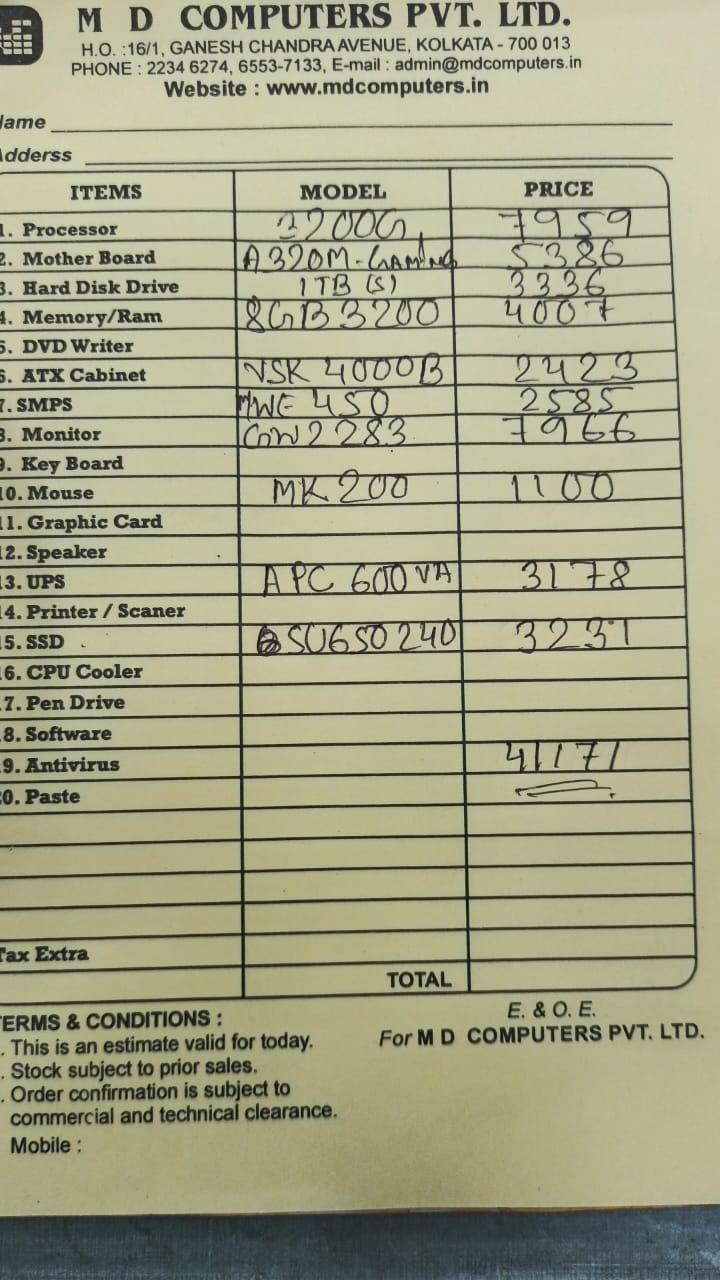 M D COMPUTERS PVT. LTD.
H.O. :16/1, GANESH CHANDRA AVENUE, KOLKATA - 700 013
PHONE : 2234 6274, 6553-7133, E-mail : admin@mdcomputers.in
Website : www.mdcomputers.in
Name
Adderss
ITEMS MODEL PRICE
1. Processor 3200G 7959
2. Mother Board A320M-GAMING 5386
3. Hard Disk Drive 1TB (S) 3336
4. Memory/Ram 8GB 3200 4007
5. DVD Writer
6. ATX Cabinet VSK 4000B 2423
7. SMPS MWE 450 2585
8. Monitor GW2283 7966
9. Key Board
10. Mouse MK 200 1100
11. Graphic Card
12. Speaker
13. UPS APC 600VA 3178
14. Printer / Scaner
15. SSD SU650 240 3231
16. CPU Cooler
17. Pen Drive
18. Software
19. Antivirus 41171
20. Paste
Tax Extra
TOTAL
TERMS & CONDITIONS :
. This is an estimate valid for today.
. Stock subject to prior sales.
. Order confirmation is subject to
commercial and technical clearance.
Mobile :
E. & O. E.
For M D COMPUTERS PVT. LTD.